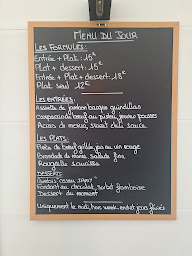 MENU DU JOUR
LES FORMULES:
Entrée + Plat: 15€
Plat + dessert: 15€
Entrée + Plat + dessert: 18€
Plat seul 12€
LES ENTRÉES:
Assiette de jambon basque guindillas
Carpaccio de boeuf au pistou, jeunes pousses
Acras de morue, sweet chili sauce
LES PLATS:
Pièce de boeuf grillée, jus au vin rouge
Brandade de morue, salade
Rougaille saucisse
DESSERTS:
Fondant au chocolat, sorbet framboise
Dessert du moment
Uniquement le midi, hors week-end et jours fériés